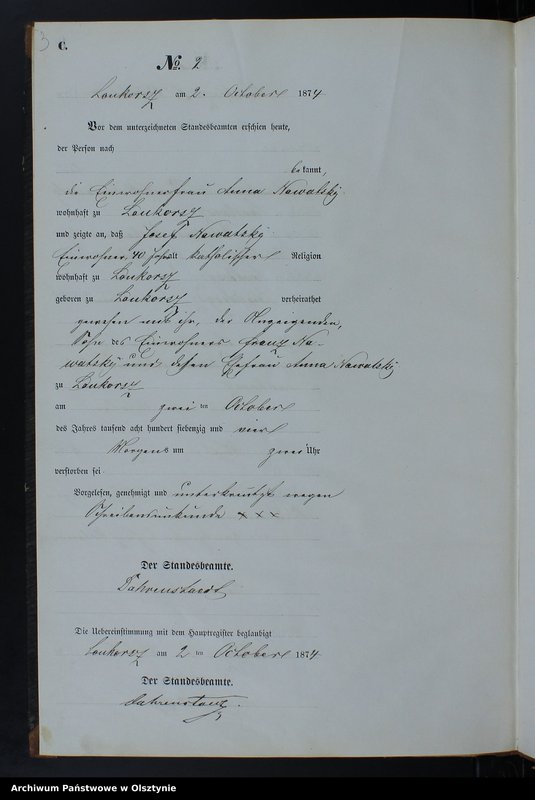 3 C.
No. 2
Loukorsz am 2. October 1874
Vor dem unterzeichneten Standesbeamten erschien heute,
der Person nach
bekannt,
die Einwohnerfrau Anna Nowatsky
wohnhaft zu Loukorsz
und zeigte an, daß Josef Nowatsky
Einwohner, 40 Jahr alt katholischer Religion
wohnhaft zu Loukorsz
geboren zu Loukorsz verheirathet
gewesen mit ihr, der Anzeigenden,
Sohn des Einwohners Franz No-
watsky und dessen Ehefrau Anna Nowatsky
zu Loukorsz
am zwei ten October
des Jahres tausend acht hundert siebenzig und vier
Morgens um zwei Uhr
verstorben sei
Vorgelesen, genehmigt und unterkreutzt wegen
Schreibensunkunde × × ×
Der Standesbeamte.
Die Uebereinstimmung mit dem Hauptregister beglaubigt
Loukorsz am 2 ten October 1874
Der Standesbeamte.
Archiwum Państwowe w Olsztynie